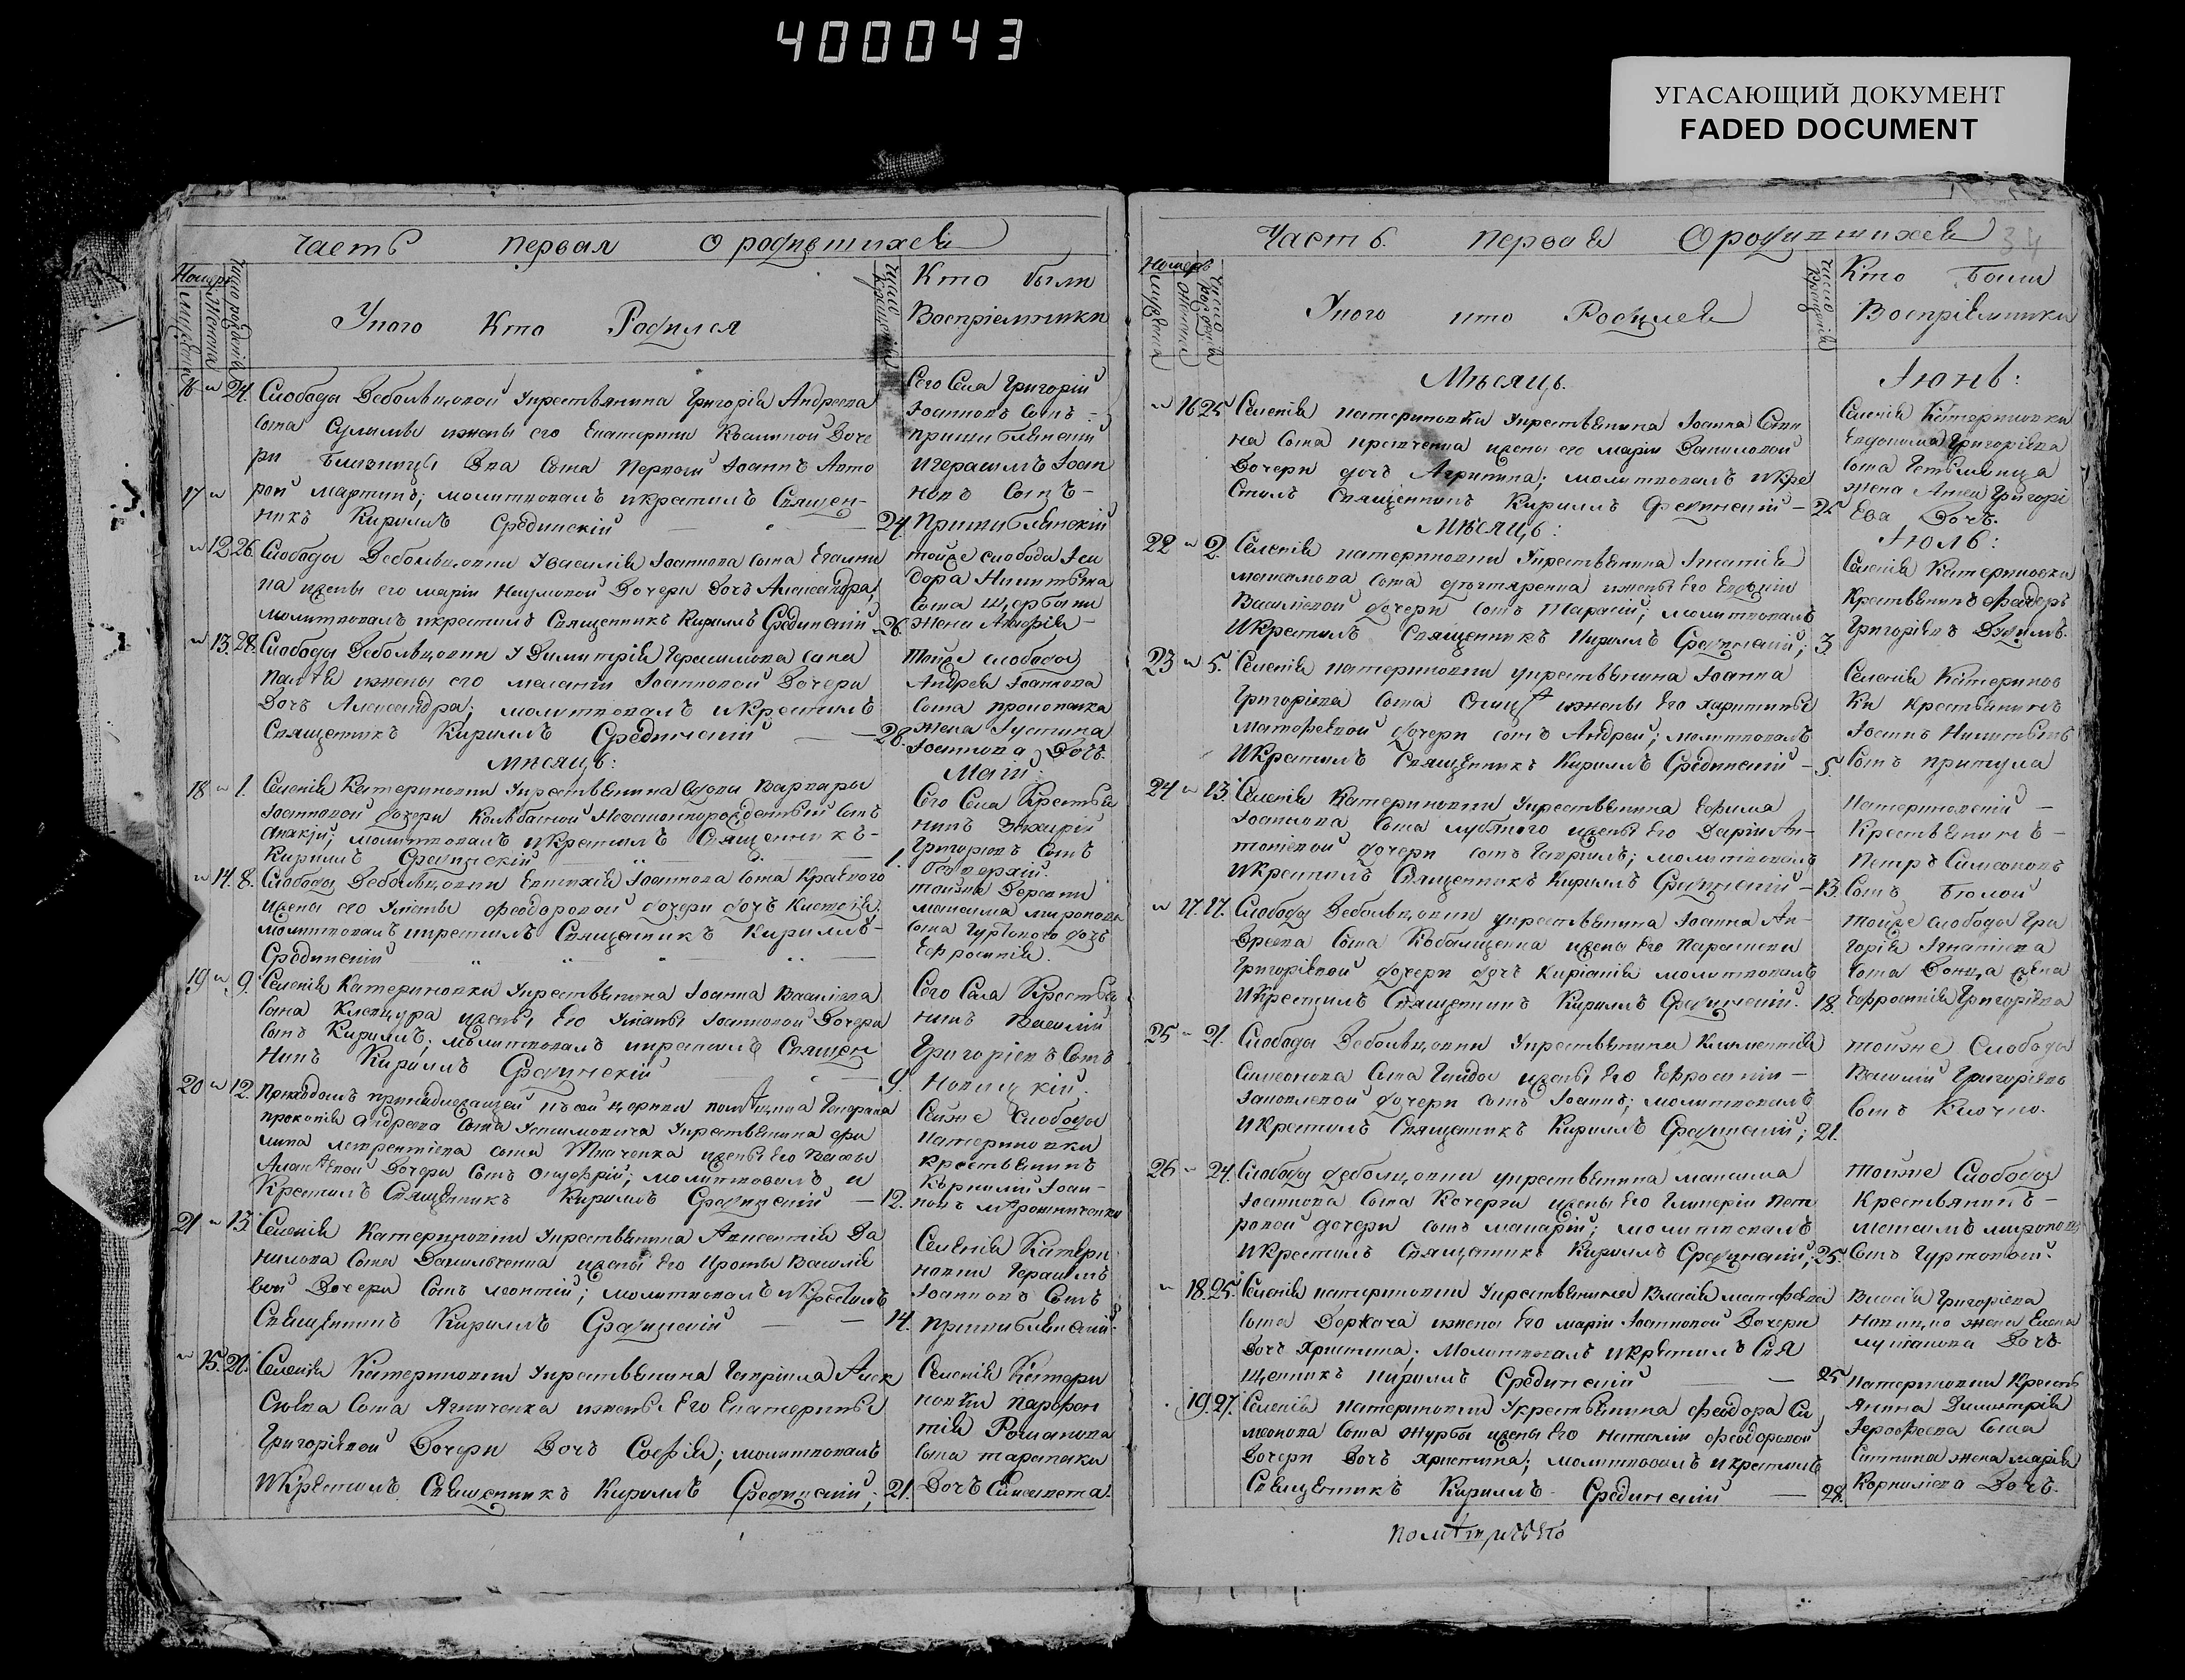 400043
УГАСАЮЩИЙ ДОКУМЕНТ
FADED DOCUMENT
Часть первая О родившихся
Номеръ
Число рожденія
Мужеска
Женска
Уного Кто Родился
Число крещенія
Кто были
Воспріемники
16 " 24. Слободы Дебольцовой Укрестьянина Григорія Андреева
сына Сулимы ижены его Екатерины Косминой Доче
ри близницы Два Сына Первой Іоаннъ Авто
17 " рой Мартинъ; молитвовалъ икрестилъ Священ-
никъ Кириллъ Срединскій 24.
Сего Села Григорій
Іоанновъ Сынъ -
Пришиблянскій
иГерасимъ Іоан
новъ Сынъ -
Пришиблянскій
" 12 26. Слободы Дебольцовки УВасилія Іоаннова сына
на жены его Маріи Наумовой Дочери Дочь Александра;
молитвовалъ икрестилъ Священникъ Кириллъ Срединскій 26.
тойже слободы Іси
дора Никитина
Сына Щербани
Жена
" 13. 28. Слободы Дебольцовки УДимитрія Герасимова сына
ижены его Меланіи Іоанновой Дочери
Дочь Александра; молитвовалъ икрестилъ
Священникъ Кириллъ Срединскій 28.
Тойже слободы
Андрея Іоаннова
Сына
жена Іустина
Іоаннова Дочь.
Мѣсяцъ: Маій:
18 " 1. Селенія Катериновки Укрестьянина вдовы Варвары
Іоанновой дочери Колбасной Незаконнорожденный сынъ
молитвовалъ икрестилъ Священникъ -
Кириллъ Срединскій 1.
Сего Села Крестья
нинъ Захарій
Григоріевъ Сынъ
" 14. 8. Слободы Дебольцовки Іоаннова сына
жены его Ульяны Феодоровой дочери дочь
молитвовалъ икрестилъ Священникъ Кириллъ -
Срединскій
тойже Деревни
Максима Миронова
сына Гуртового дочь
Ефросинія.
19 " 9. Селенія Катериновки Укрестьянина Іоанна Васильева
сына жены Его Ульяны Іоанновой Дочери
сынъ Кириллъ; молитвовалъ икрестилъ Священ
никъ Кириллъ Срединскій 9.
Сего Села Крестья
нинъ Василій
Григоріевъ Сынъ
Новицкій.
20 " 12. Приходомъ принадлежащей къ сей церкви помѣщика Генерала
Прокопія Андреева сына Устимовича Укрестьянина Фи
липа Лаврентіева сына Ткаченка жены Его
Дочери Сынъ Онуфрій; молитвовалъ и
Крестилъ Священникъ Кириллъ Срединскій 12.
Сейже Слободы
Катериновки
крестьянинъ
Корнилій Іоан-
новъ Мирошниченко
21 " 13 Селенія Катериновки Укрестьянина Авксентія Да
нилова Сына Данильченка жены Его Василіе
вой Дочери Сынъ Леонтій; молитвовалъ икрестилъ
Священникъ Кириллъ Срединскій 14.
Селенія Катери
новки Герасимъ
Іоанновъ Сынъ
Пришиблянскій.
" 15. 21. Селенія Катериновки Укрестьянина Гавріила Алек
сѣева Сына ижены Его Екатерины
Григорієвой Дочери Дочь Софія; молитвовалъ
икрестилъ Священникъ Кириллъ Срединскій; 21.
Селенія Катери
новки Парфен
тія Романова
сына
Дочь Елисавета.
Часть первая О родившихся 34
Номеръ
Мужеска
Женска
Число рожденія
Уного кто Родился
Число крещенія
Кто были
Воспріемники
Мѣсяцъ. Іюнь:
" 16 25 Селенія Катериновки Укрестьянина Іоанна
на сына жены его Маріи Даниловой
Дочери дочь Агрипина; молитвовалъ икре
стилъ Священникъ Кириллъ Срединскій - 25
Селенія Катериновки
Евдокима Григоріева
сына
жена Анна Григорі
ева Дочь.
Мѣсяцъ: Іюль:
22 " 2. Селенія Катериновки Укрестьянина Игнатія
Максимова сына ижены Его Евдокіи
Васильевой дочери сынъ Тарасій; молитвовалъ
икрестилъ Священникъ Кириллъ Срединскій; 3.
Селенія Катериновки
Крестьянинъ Феодоръ
Григоріевъ
23 " 5. Селенія Катериновки Укрестьянина Іоанна
Григоріева сына ижены Его Харитины
Матфеевой дочери сынъ Андрей; молитвовалъ
икрестилъ Священникъ Кириллъ Срединскій - 5.
Селенія Катеринов
ки Крестьянинъ
Іоаннъ Никитинъ
Сынъ Притула
24 " 13. Селенія Катериновки Укрестьянина Ефима
сына жены Его Даріи Ан-
тоніевой дочери сынъ Гавриилъ; молитвовалъ
икрестилъ Священникъ Кириллъ Срединскій - 13.
Катериновскій -
Крестьянинъ -
Петръ Симеоновъ
Сынъ Бѣлой
" 17. 17. Слободы Дебольцовки Укрестьянина Іоанна Ан-
дреева сына жены Его Параскевы
Григорієвой дочери дочь Киріакія молитвовалъ
икрестилъ Священникъ Кириллъ Срединскій. 18.
тойже слободы Гри
горія Игнатіева
сына Донца жена
Ефросинія Григоріева
25 " 21. Слободы Дебольцовки Укрестьянина Климентія
Симеонова сына Гниды жены Его Ефросиніи -
Дочери сынъ Іоаннъ; молитвовалъ
икрестилъ Священникъ Кириллъ Срединскій; 21.
тойже Слободы
Василій Григоріевъ
сынъ Клочко.
26 " 24. Слободы Дебольцовки Укрестьянина Максима
Іоаннова сына Кочерги жены Его Гликеріи Пет
ровой дочери сынъ Макарій; молитвовалъ
икрестилъ Священникъ Кириллъ Срединскій; 25.
тойже Слободы
Крестьянинъ -
Максимъ Мироновъ
сынъ Гуртовой.
" 18. 25. Селенія Катериновки Укрестьянина Власія Матфеева
сына Деркача ижены Его Маріи Іоанновой Дочери
Дочь Христина; молитвовалъ икрестилъ Свя
щенникъ Кириллъ Срединскій - 25
Власія Григоріева
жена Елена
Дочь
" 19. 27. Селенія Катериновки Укрестьянина Феодора Си
меонова сына Журбы жены Его Наталіи Феодоровой
Дочери Дочь Христина; молитвовалъ икрестилъ
Священникъ Кириллъ Срединскій - 28.
Катериновки Кресть
янина Димитрія
Іерофеева сына
жена Марія
Корнилієва Дочь.